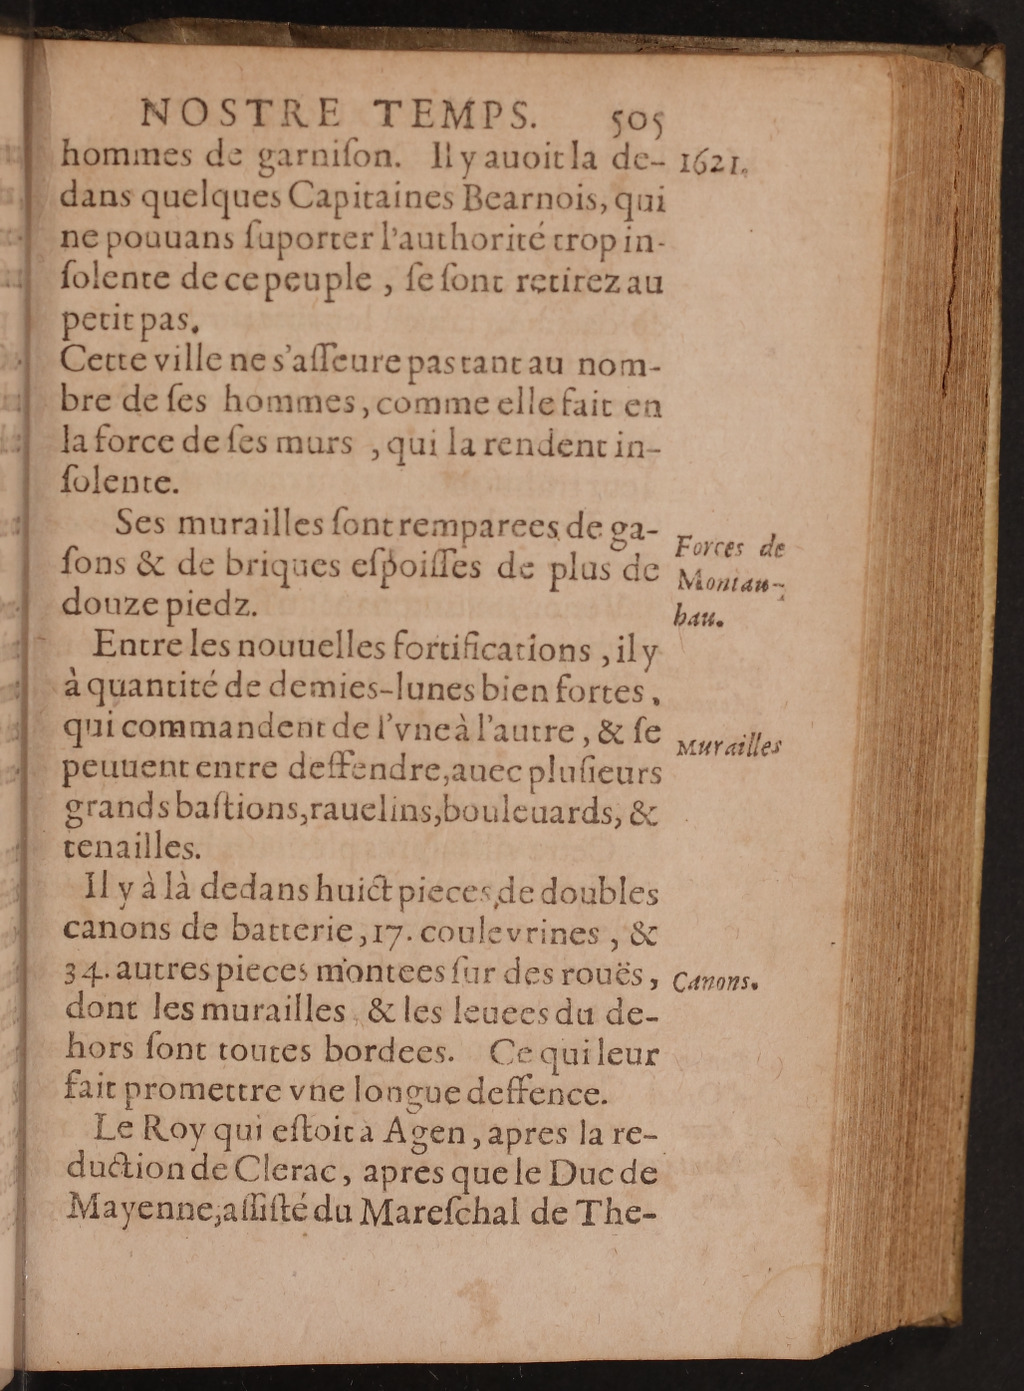 NOSTRE TEMPS. 505
hommes de garniſon. Il y auoit la de- 1621.
dans quelques Capitaines Bearnois, qui
ne pouuans ſuporter l'authorité trop in-
ſolente de ce peuple , ſe ſont retirez au
petit pas.
Cette ville ne s'aſſeure pas tant au nom-
bre de ſes hommes, comme elle fait en
la force de ſes murs , qui la rendent in-
ſolente.
Ses murailles ſont remparees de ga-
ſons & de briques eſpoiſſes de plus de
douze piedz.
Forces de
Montau-
bau.
Entre les nouuelles fortifications , il y
à quantité de demies-lunes bien fortes,
qui commandent de l'vne à l'autre, & ſe
peuuent entre deffendre, auec pluſieurs
grands baſtions, rauelins, bouleuards, &
tenailles.
Murailles
Il y à là dedans huict pieces de doubles
canons de batterie, 17. coulevrines , &
34. autres pieces montees ſur des rouës,
dont les murailles & les leuees du de-
hors ſont toutes bordees. Ce qui leur
fait promettre vne longue deffence.
Canons.
Le Roy qui eſtoit à Agen, apres la re-
duction de Clerac, apres que le Duc de
Mayenne, aſſiſté du Mareſchal de The-